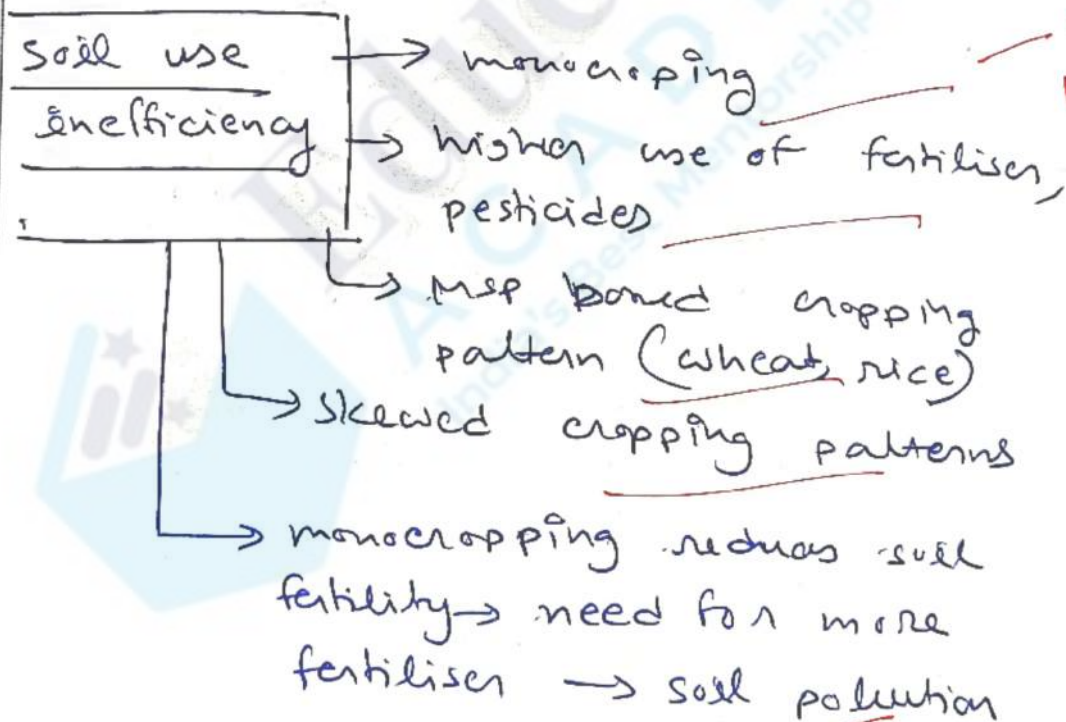 Soil use
inefficiency
→ monocroping
→ higher use of fertiliser,
pesticides
→ MSP based cropping
pattern (wheat, rice)
→ skewed cropping patterns
→ monocropping reduces soil
fertility → need for more
fertiliser → soil pollution
Edu
ACAD
India's Best Mentorship